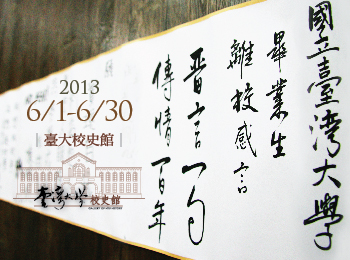 國立臺灣大學
畢業生
離校感言
晋言一句
傳情一百年
2013
6/1-6/30
臺大校史館
臺灣大學 校史館